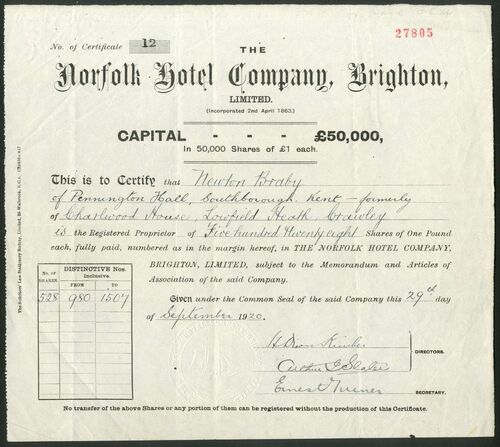 27805
No. of Certificate 12
THE
Norfolk Hotel Company, Brighton,
LIMITED.
(Incorporated 2nd April 1863.)
CAPITAL - - - £50,000,
In 50,000 Shares of £1 each.
This is to Certify that Newton Braby
of Pennington Hall, Southborough, Kent - formerly
of Charlwood House, Lowfield Heath Crawley
is the Registered Proprietor of Five hundred twenty eight Shares of One Pound
each, fully paid, numbered as in the margin hereof, in THE NORFOLK HOTEL COMPANY,
BRIGHTON, LIMITED, subject to the Memorandum and Articles of
Association of the said Company.
No. OF SHARES. DISTINCTIVE Nos. Inclusive.
FROM TO
528 980 1507
Given under the Common Seal of the said Company this 29th day
of September 1920.
DIRECTORS.
Ernest Turner
SECRETARY.
No transfer of the above Shares or any portion of them can be registered without the production of this Certificate.